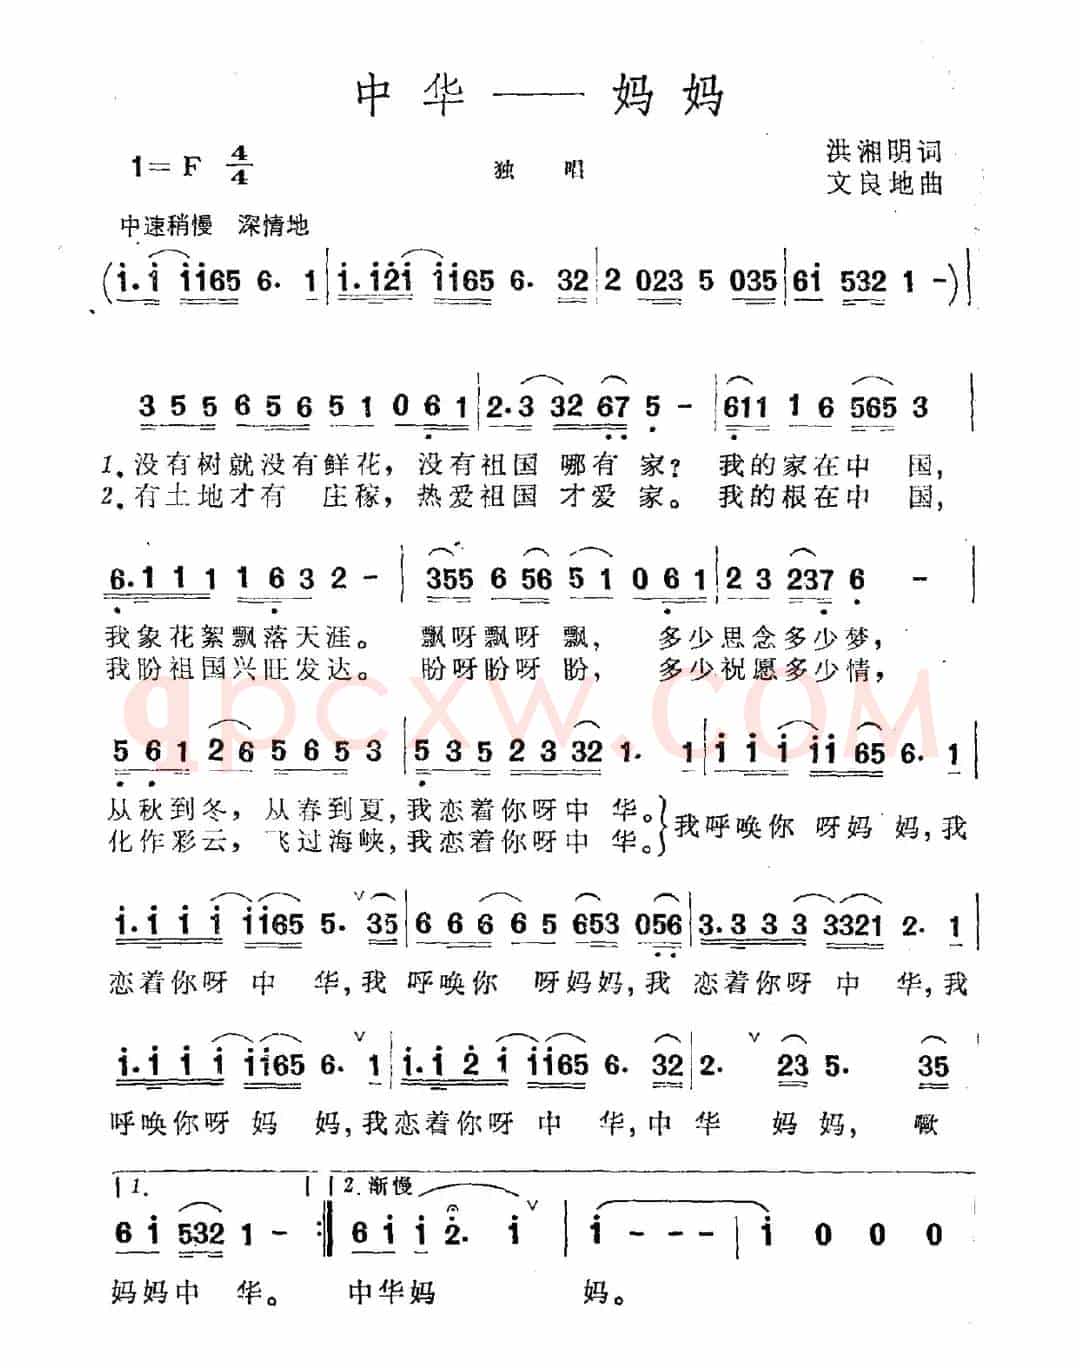 中华——妈妈
1=F 4/4
独 唱
洪湘明词
文良地曲
中速稍慢 深情地
(i.i ii65 6. 1 | i.i2i ii65 6. 32 | 2 023 5 035 | 6i 532 1 -) |
3 5 5 6 5 6 5 1 0 6 1 | 2.3 32 67 5 - | 611 1 6 565 3 |
1.没有树就没有鲜花，没有祖国 哪有 家？ 我的家在中 国，
2.有土地才有 庄稼，热爱祖国 才爱 家。 我的根在中 国，
6.1 1 1 1 6 3 2 - | 355 6 56 5 1 0 6 1 | 2 3 237 6 -
我象花絮飘落天涯。 飘呀飘呀 飘， 多少思念多少梦，
我盼祖国兴旺发达。 盼呀盼呀 盼， 多少祝愿多少情，
qpcxw.COM
5 6 1 2 6 5 6 5 3 | 5 3 5 2 3 32 1. 1 | i i i ii 65 6. 1 |
从秋到冬，从春到夏，我恋着你呀中 华。} 我呼唤你 呀妈 妈，我
化作彩云，飞过海峡，我恋着你呀中 华。}
i.i i i ii65 5. ∨35 | 6 6 6 6 5 653 056 | 3.3 3 3 3321 2. 1 |
恋着你呀 中 华，我 呼唤你 呀妈妈，我 恋着你呀 中 华，我
i.i i i ii65 6. ∨1 | i.i 2 i ii65 6. 32 | 2. ∨23 5. 35
呼唤你呀 妈 妈，我恋着你呀 中 华，中 华 妈 妈， 噉
1. 2.渐慢
6 i 532 1 - :| 6 i i 2. i ∨ | i - - - | i 0 0 0
妈妈中 华。 中华妈 妈。